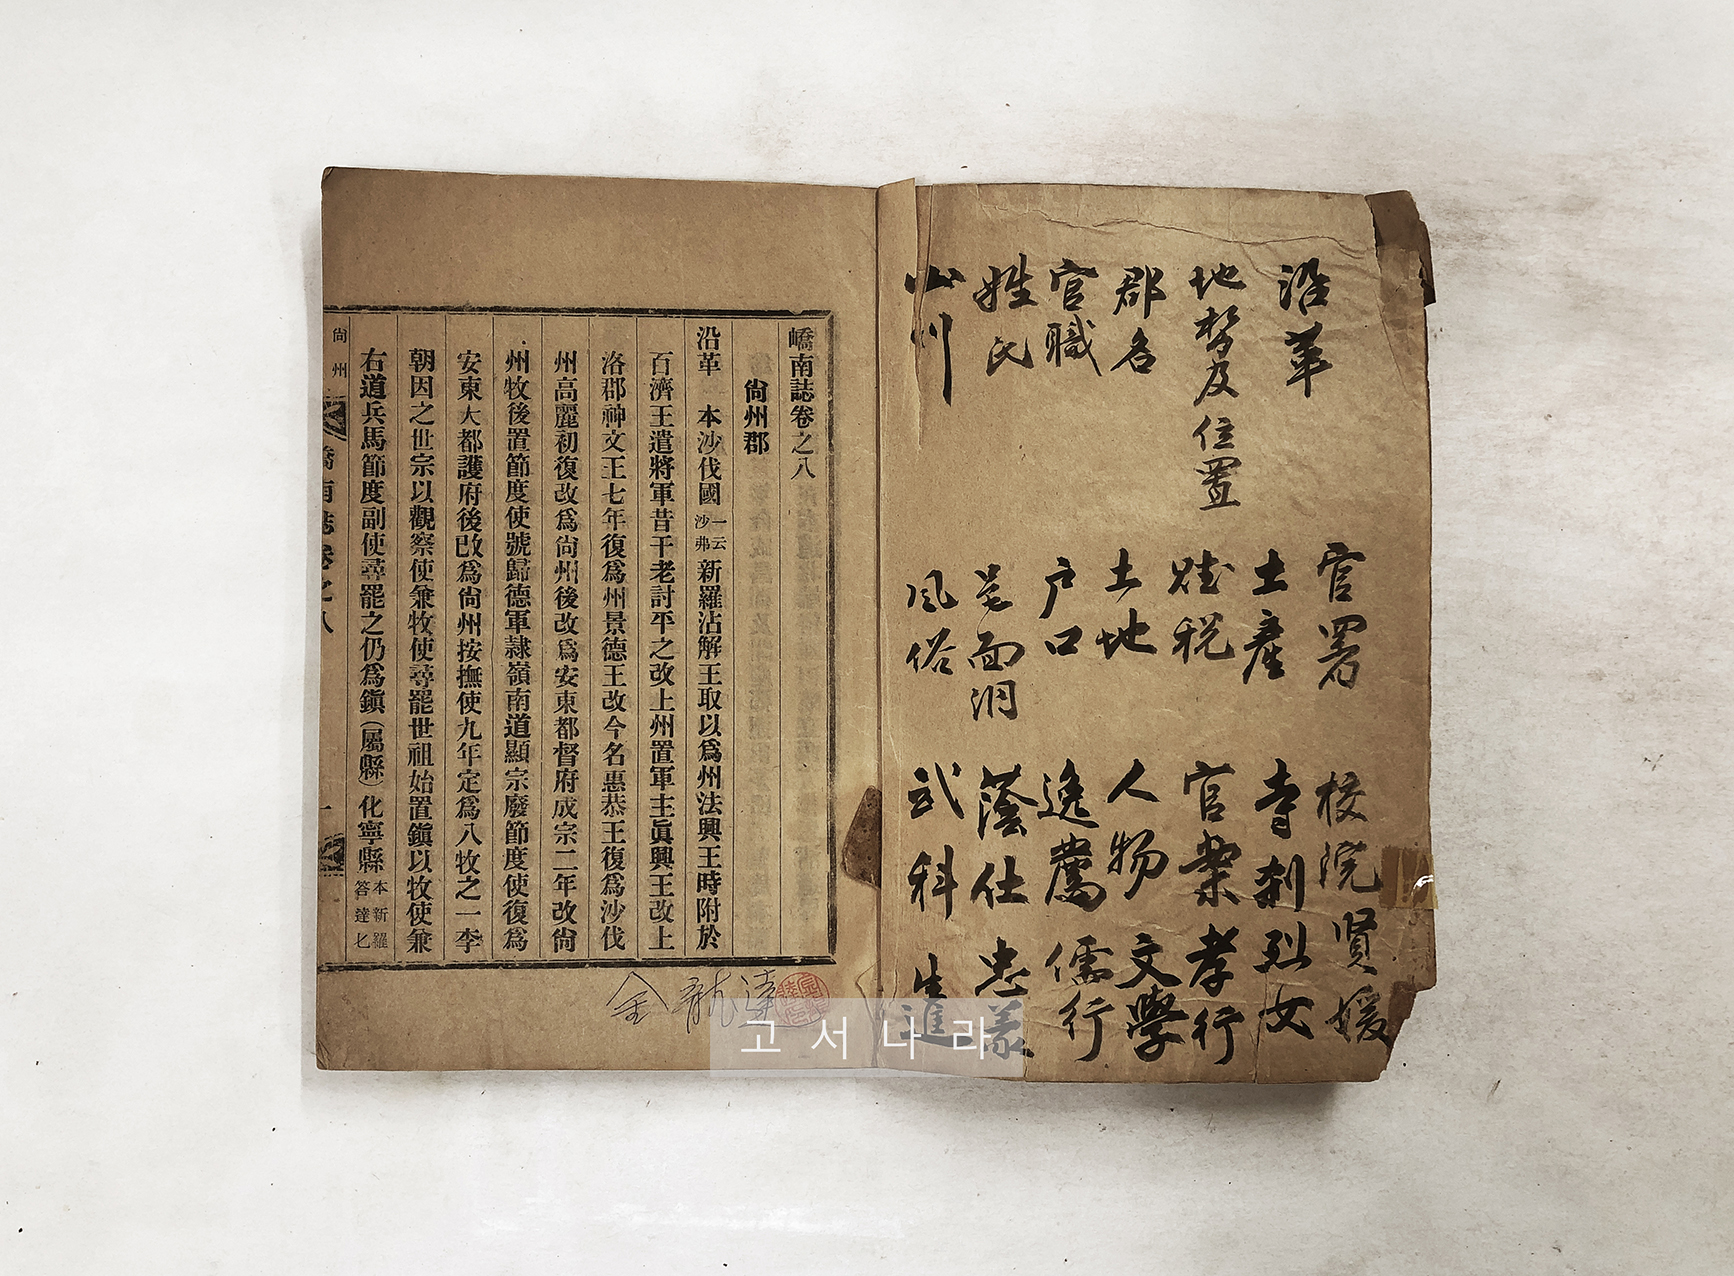 沿革
地勢及位置
郡名
官職
姓氏
山川
官署
土産
賦税
土地
户口
面洞
風俗
校院 賢媛
寺刹 烈女
官案 孝行
人物 文學
逸薦 儒行
蔭仕 忠義
武科 生進
嶠南誌卷之八
尙州郡
沿革 本沙伐國一云沙弗新羅沾解王取以爲州法興王時附於
百濟王遣將軍昔于老討平之改上州置軍主眞興王改上
洛郡神文王七年復爲州景德王改今名惠恭王復爲沙伐
州高麗初復改爲尙州後改爲安東都督府成宗二年改尙
州牧後置節度使號歸德軍隷嶺南道顯宗廢節度使復爲
安東大都護府後改爲尙州按撫使九年定爲八牧之一李
朝因之世宗以觀察使兼牧使尋罷世祖始置鎭以牧使兼
右道兵馬節度副使尋罷之仍爲鎭(屬縣)化寧縣本新羅答達匕
尙州
嶠南誌卷之八
一
金龍達
고서나라